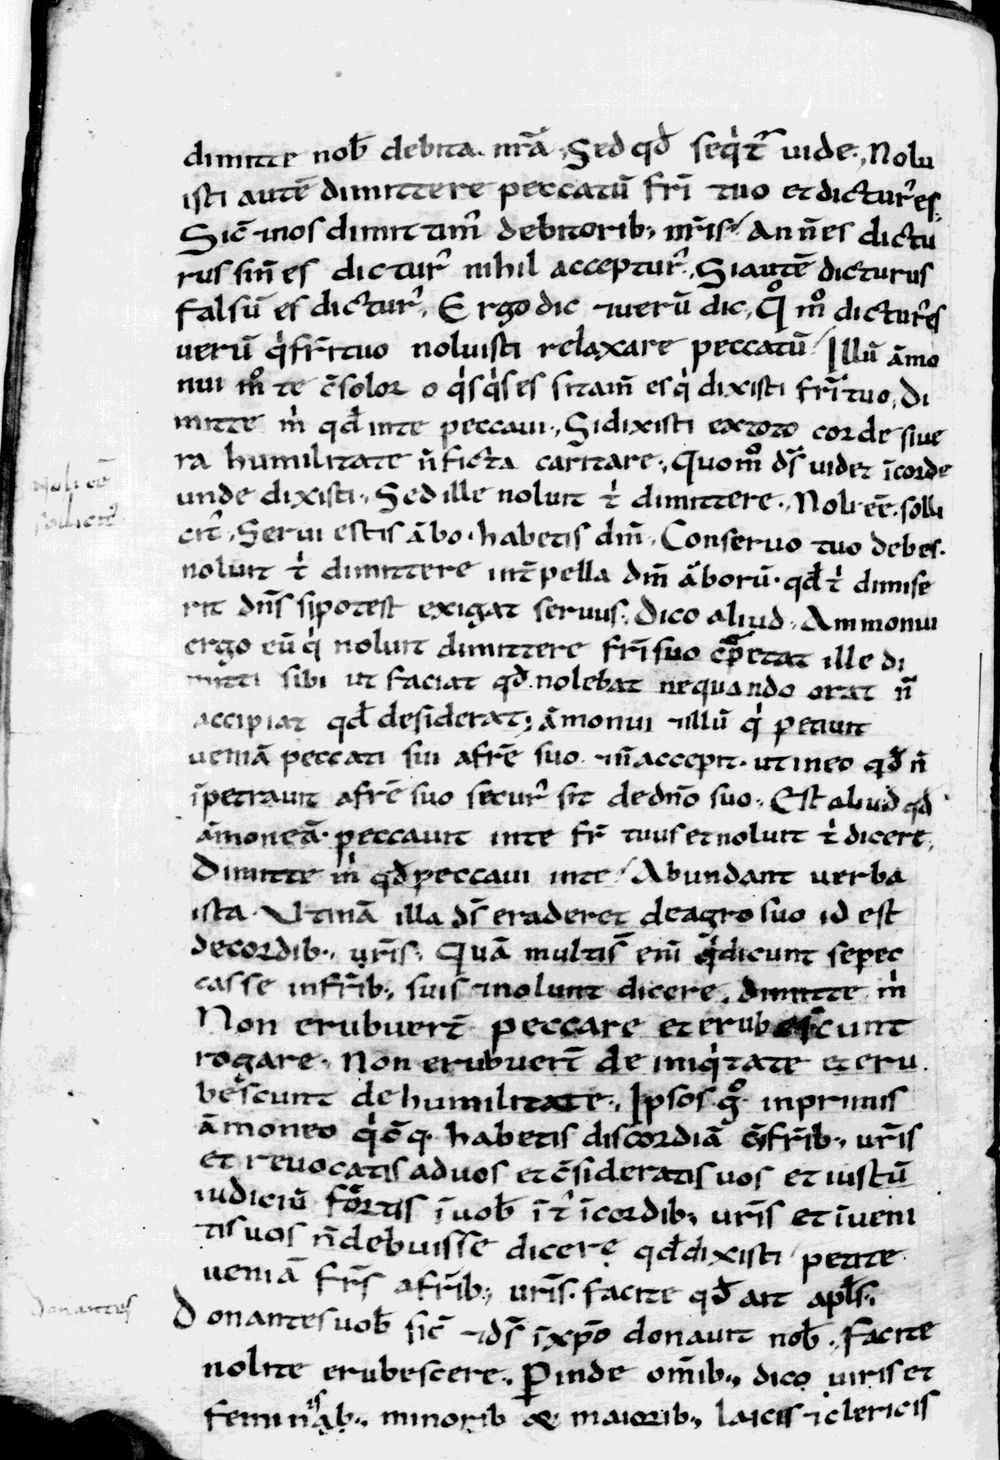 dimitte nob̄ debita nr̄a. Sed qd̄ seqit̄ vide. Nolu
isti autē dimittere peccatū fri tuo et dictur' es.
Sic̄ ⁊ nos dimittim' debitorib; nr̄is / An n̄ es dictu
rus sin̄ es dictur' nihil acceptur'. Si autē dicturus
falsū es dictur'. Ergo dic ⁊ verū dic. Qo mo dictur' es
verū qi fr̄i tuo noluisti relaxare peccatū / Illū āmo
nui mo te c̄solor o qisqis es si tam̄ es qi dixisti fr̄i tuo, Di
mitte mi qd̄ in te peccavi. Si dixisti ex toto corde si ve
ra humilitate n̄ ficta caritate. Quomo ds̄ videt ī corde
unde dixisti. Sed ille noluit ti dimittere. Noli ee̅ solli
cit'. Servi estis ābo habetis dn̄m. Conservo tuo debes.
noluit ti dimittere int̄pella dn̄m āborū. qd̄ ti dimise
rit dn̄s si potest exigat servus. Dico aliud. Ammonui
ergo eū qi noluit dimittere fr̄i suo ille di
mitti sibi ut faciat qd̄ nolebat ne quando orat n̄
accipiat qd̄ desiderat; āmonui ⁊ illū qi petiuit
veniā peccati sui a fr̄e suo ⁊ n̄ accepit. ut in eo qd̄ n̄
īpetravit a fr̄e suo secur' sit de dn̄o suo. Est aliud qd̄
āmoneā. peccavit in te fr̄ tuus et noluit ti dicere.
Dimitte mi qd̄ peccavi in te / Abundant verba
ista. Utinā illa ds̄ eraderet de agro suo id est
de cordib; vr̄is. Quā multi s̄ eni̅ qi dicunt se pec
casse in fr̄ib; suis ⁊ nolunt dicere. dimitte mi
Non erubuert̄ peccare et erubescunt
rogare. Non erubuert̄ de iniqitate et eru
bescunt de humilitate. Ipsos go in primis
āmoneo qicq̅ habetis discordiā c̄ fr̄ib; vr̄is
et revocatis ad vos et c̄sideratis vos et iustū
iudiciū fertis ī vob̄ īti ī cordib; vr̄is et īveni
tis vos n̄ debuisse dicere qd̄ dixisti / petite
veniā fr̄s a fr̄ib; vr̄is. facite qd̄ ait apl̄s.
Donantes vob̄ sic̄ ⁊ ds̄ ī xp̄o donavit nob̄. Facite
nolite erubescere. Pinde om̄ib; dico viris et
feminis minorib & maiorib; laicis ⁊ clericis
Noli ee̅
sollicit'
Donantes